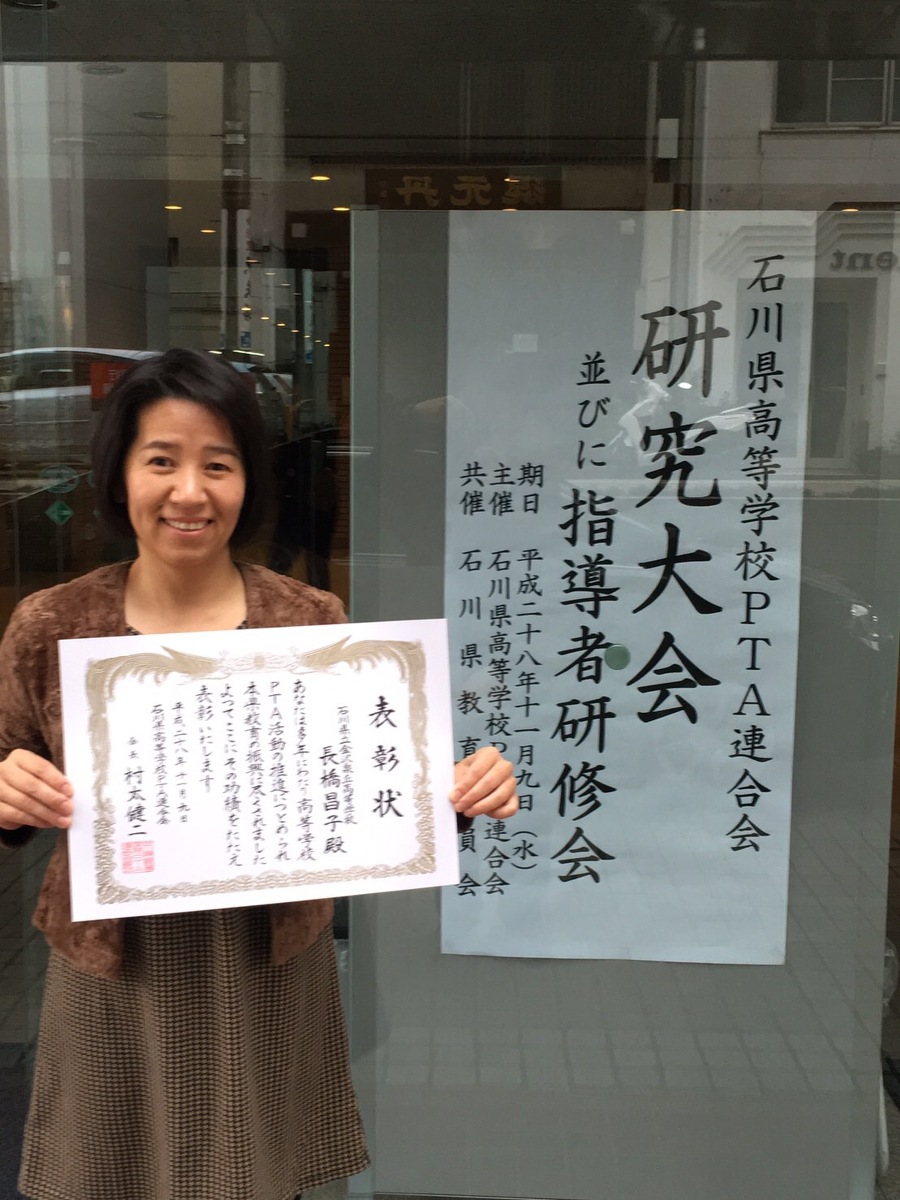 石川県高等学校PTA連合会
研究大会
並びに指導者研修会
期日 平成二十八年十一月九日(水)
主催 石川県高等学校P連合会
共催 石川県教育員会
表彰状
長橋昌子殿
あなたは多年にわたり高等学校
PTA活動の推進につとめられ
本県教育の振興に尽くされました
よってここにその功績をたたえ
表彰いたします
平成二十八年十一月九日
石川県高等学校PTA連合会
会長 村太健二